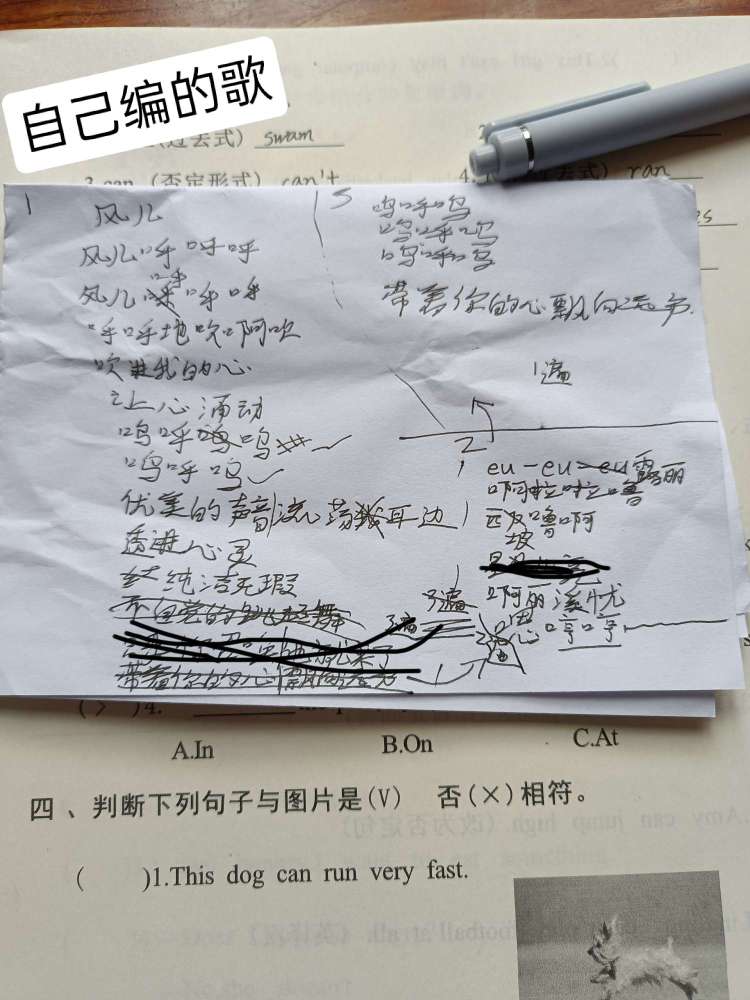 自己编的歌
(过去式) swam
3.can (否定形式) can't
4.
ran
1
风儿
风儿呼呼呼
风儿呼呼呼
呼呼地吹啊吹
吹进我的心
让心涌动
呜呼呜
呜呼呜
优美的声音流荡我耳边
透进心灵
纯洁无瑕
带着你的心飘向远方
3
呜呼呜
呜呼呜
呜呼呜
带着你的心飘向远方
1遍
2
eu-eu-eu露丽
啊啦啦噜
匹及噜啊
坡
啊丽溪忧
思心哼哼
3遍
3遍
( > )4.
A.In B.On C.At
四、判断下列句子与图片是(V) 否(×)相符。
( )1.This dog can run very fast.